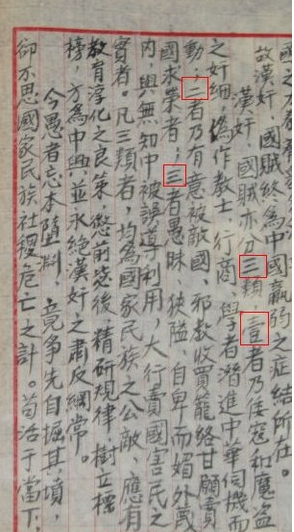 故漢奸，國賊終為中國羸弱之症結所在。
漢奸，國賊亦分三類，壹者乃倭寇和魔盜
之奸細，偽作教士，行商，學者潛進中華伺機而
動；二者乃有意被敵國、邪教收買籠絡甘願賣
國求榮者；三者愚昧，狹隘，自卑而媚外或
内，與無知中被誘導利用，大行賣國害民之
實者。凡三類者，均為國家民族之公敵，應有
教育淨化之良策，懲前毖後，精研規律，樹立標
榜，方為中興並永絕漢奸之肅反綱常。
今愚者忘本墮淵，竟爭先自掘其墳，
卻不思國家民族社稷危亡之計。苟活于當下，